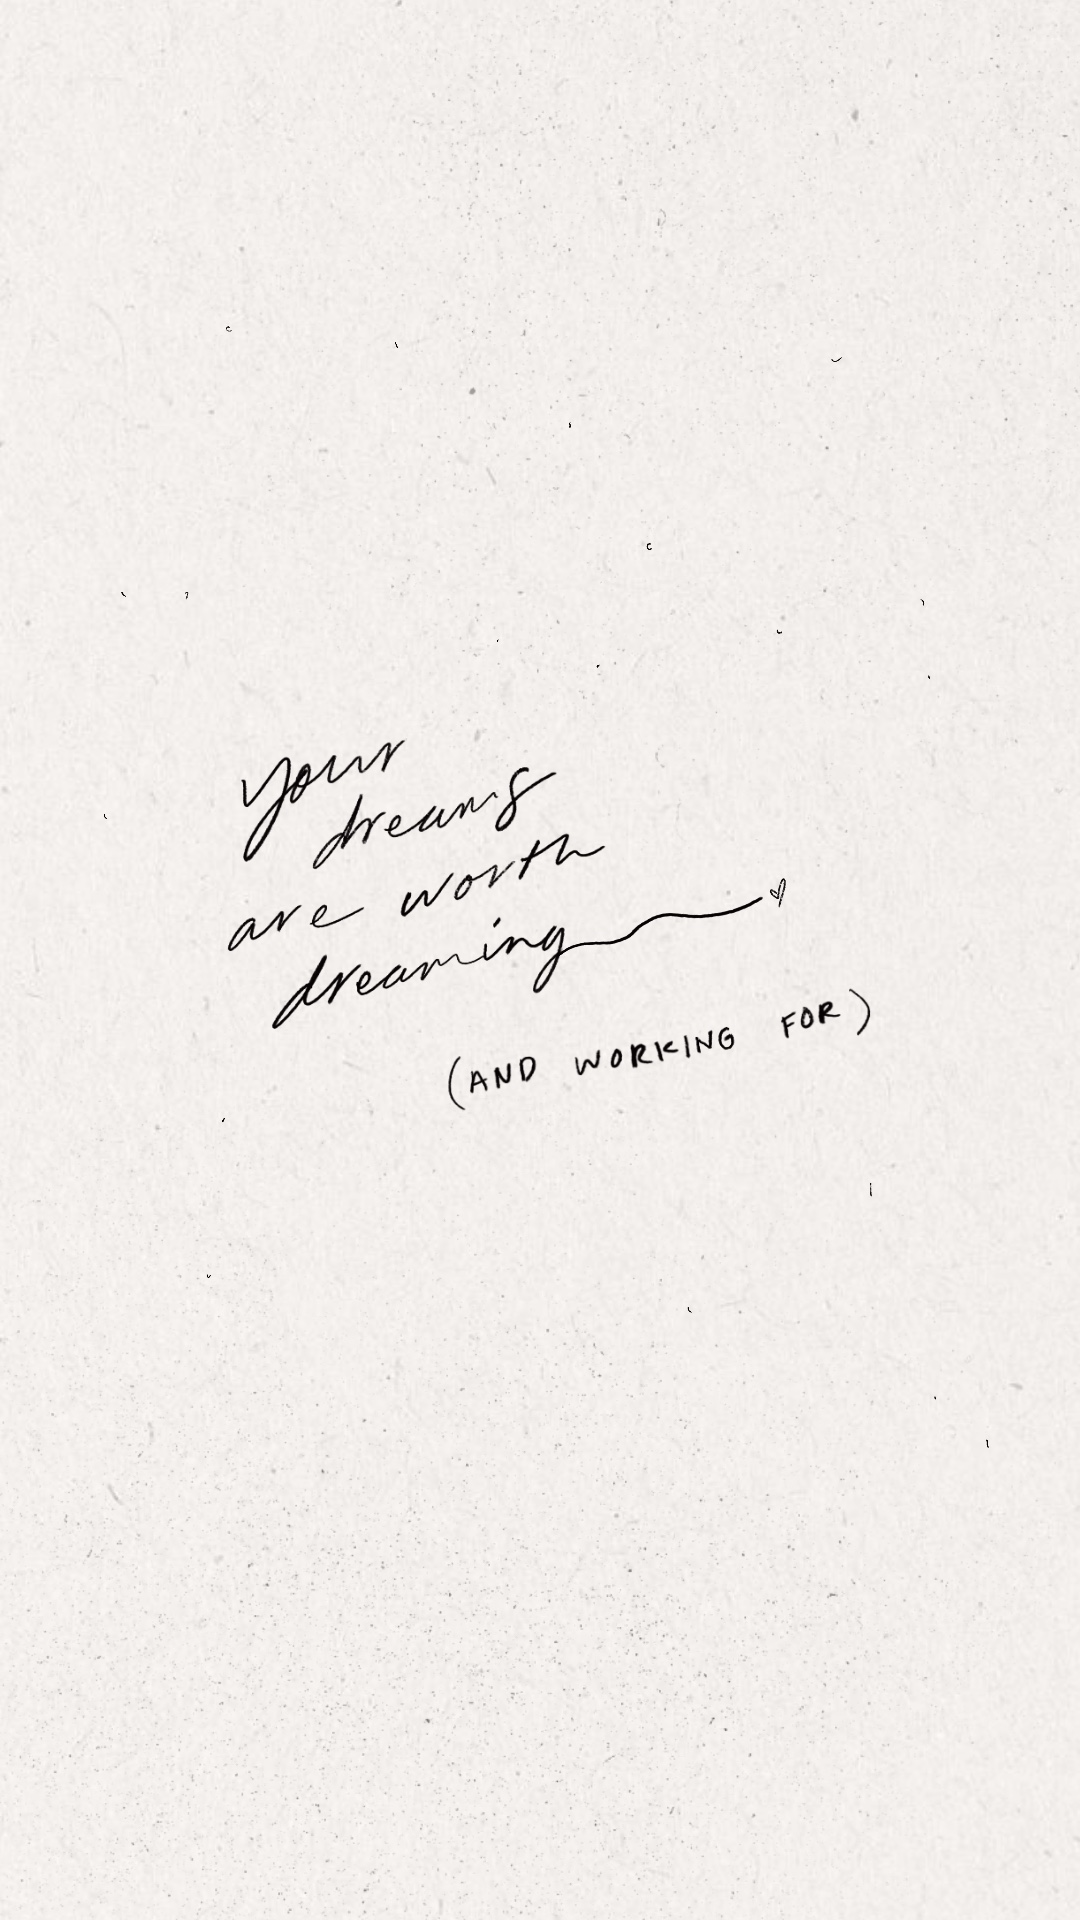 your
dreams
are worth
dreaming
(AND WORKING FOR)